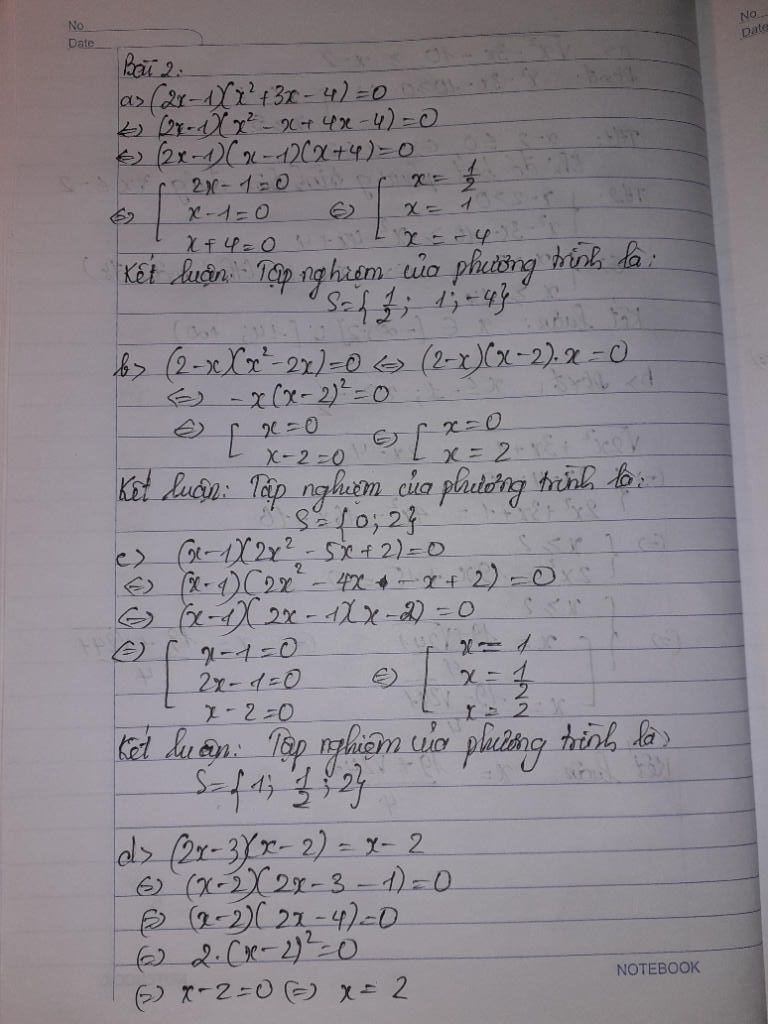 No
Date
No
Date
Bài 2:
a> (2x-1)(x²+3x-4)=0
⇔ (2x-1)(x²-x+4x-4)=0
⇔ (2x-1)(x-1)(x+4)=0
⇔ [ 2x-1=0 ⇔ [ x=1/2
x-1=0 x=1
x+4=0 x=-4
Kết luận: Tập nghiệm của phương trình là:
S={1/2; 1;-4}
b> (2-x)(x²-2x)=0 ⇔ (2-x)(x-2).x=0
⇔ -x(x-2)²=0
⇔ [ x=0 ⇔ [ x=0
x-2=0 x=2
Kết luận: Tập nghiệm của phương trình là:
S={0;2}
c> (x-1)(2x²-5x+2)=0
⇔ (x-1)(2x²-4x-x+2)=0
⇔ (x-1)(2x-1)(x-2)=0
⇔ [ x-1=0 ⇔ [ x=1
2x-1=0 x=1/2
x-2=0 x=2
Kết luận: Tập nghiệm của phương trình là:
S={1; 1/2; 2}
d> (2x-3)(x-2)=x-2
⇔ (x-2)(2x-3-1)=0
⇔ (x-2)(2x-4)=0
⇔ 2.(x-2)²=0
⇔ x-2=0 ⇔ x=2
NOTEBOOK